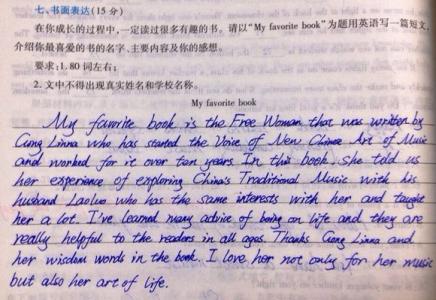 七、书面表达(15分)
在你成长的过程中,一定读过很多有趣的书。请以"My favorite book"为题用英语写一篇短文,
介绍你最喜爱的书的名字、主要内容及你的感想。
要求:1. 80 词左右;
2. 文中不得出现真实姓名和学校名称。
My favorite book
My favorite book is the Free Woman that was written by
Gong Linna who has started the Voice of New Chinese Art of Music
and worked for it over ten years. In this book, she told us
her experience of exploring China's Traditional Music with his
husband Laoluo who has the same interests with her and taught
her a lot. I've learned many advice of being on life and they are
really helpful to the readers in all ages. Thanks Gong Linna and
her wisdom words in the book. I love her not only for her music
but also her art of life.